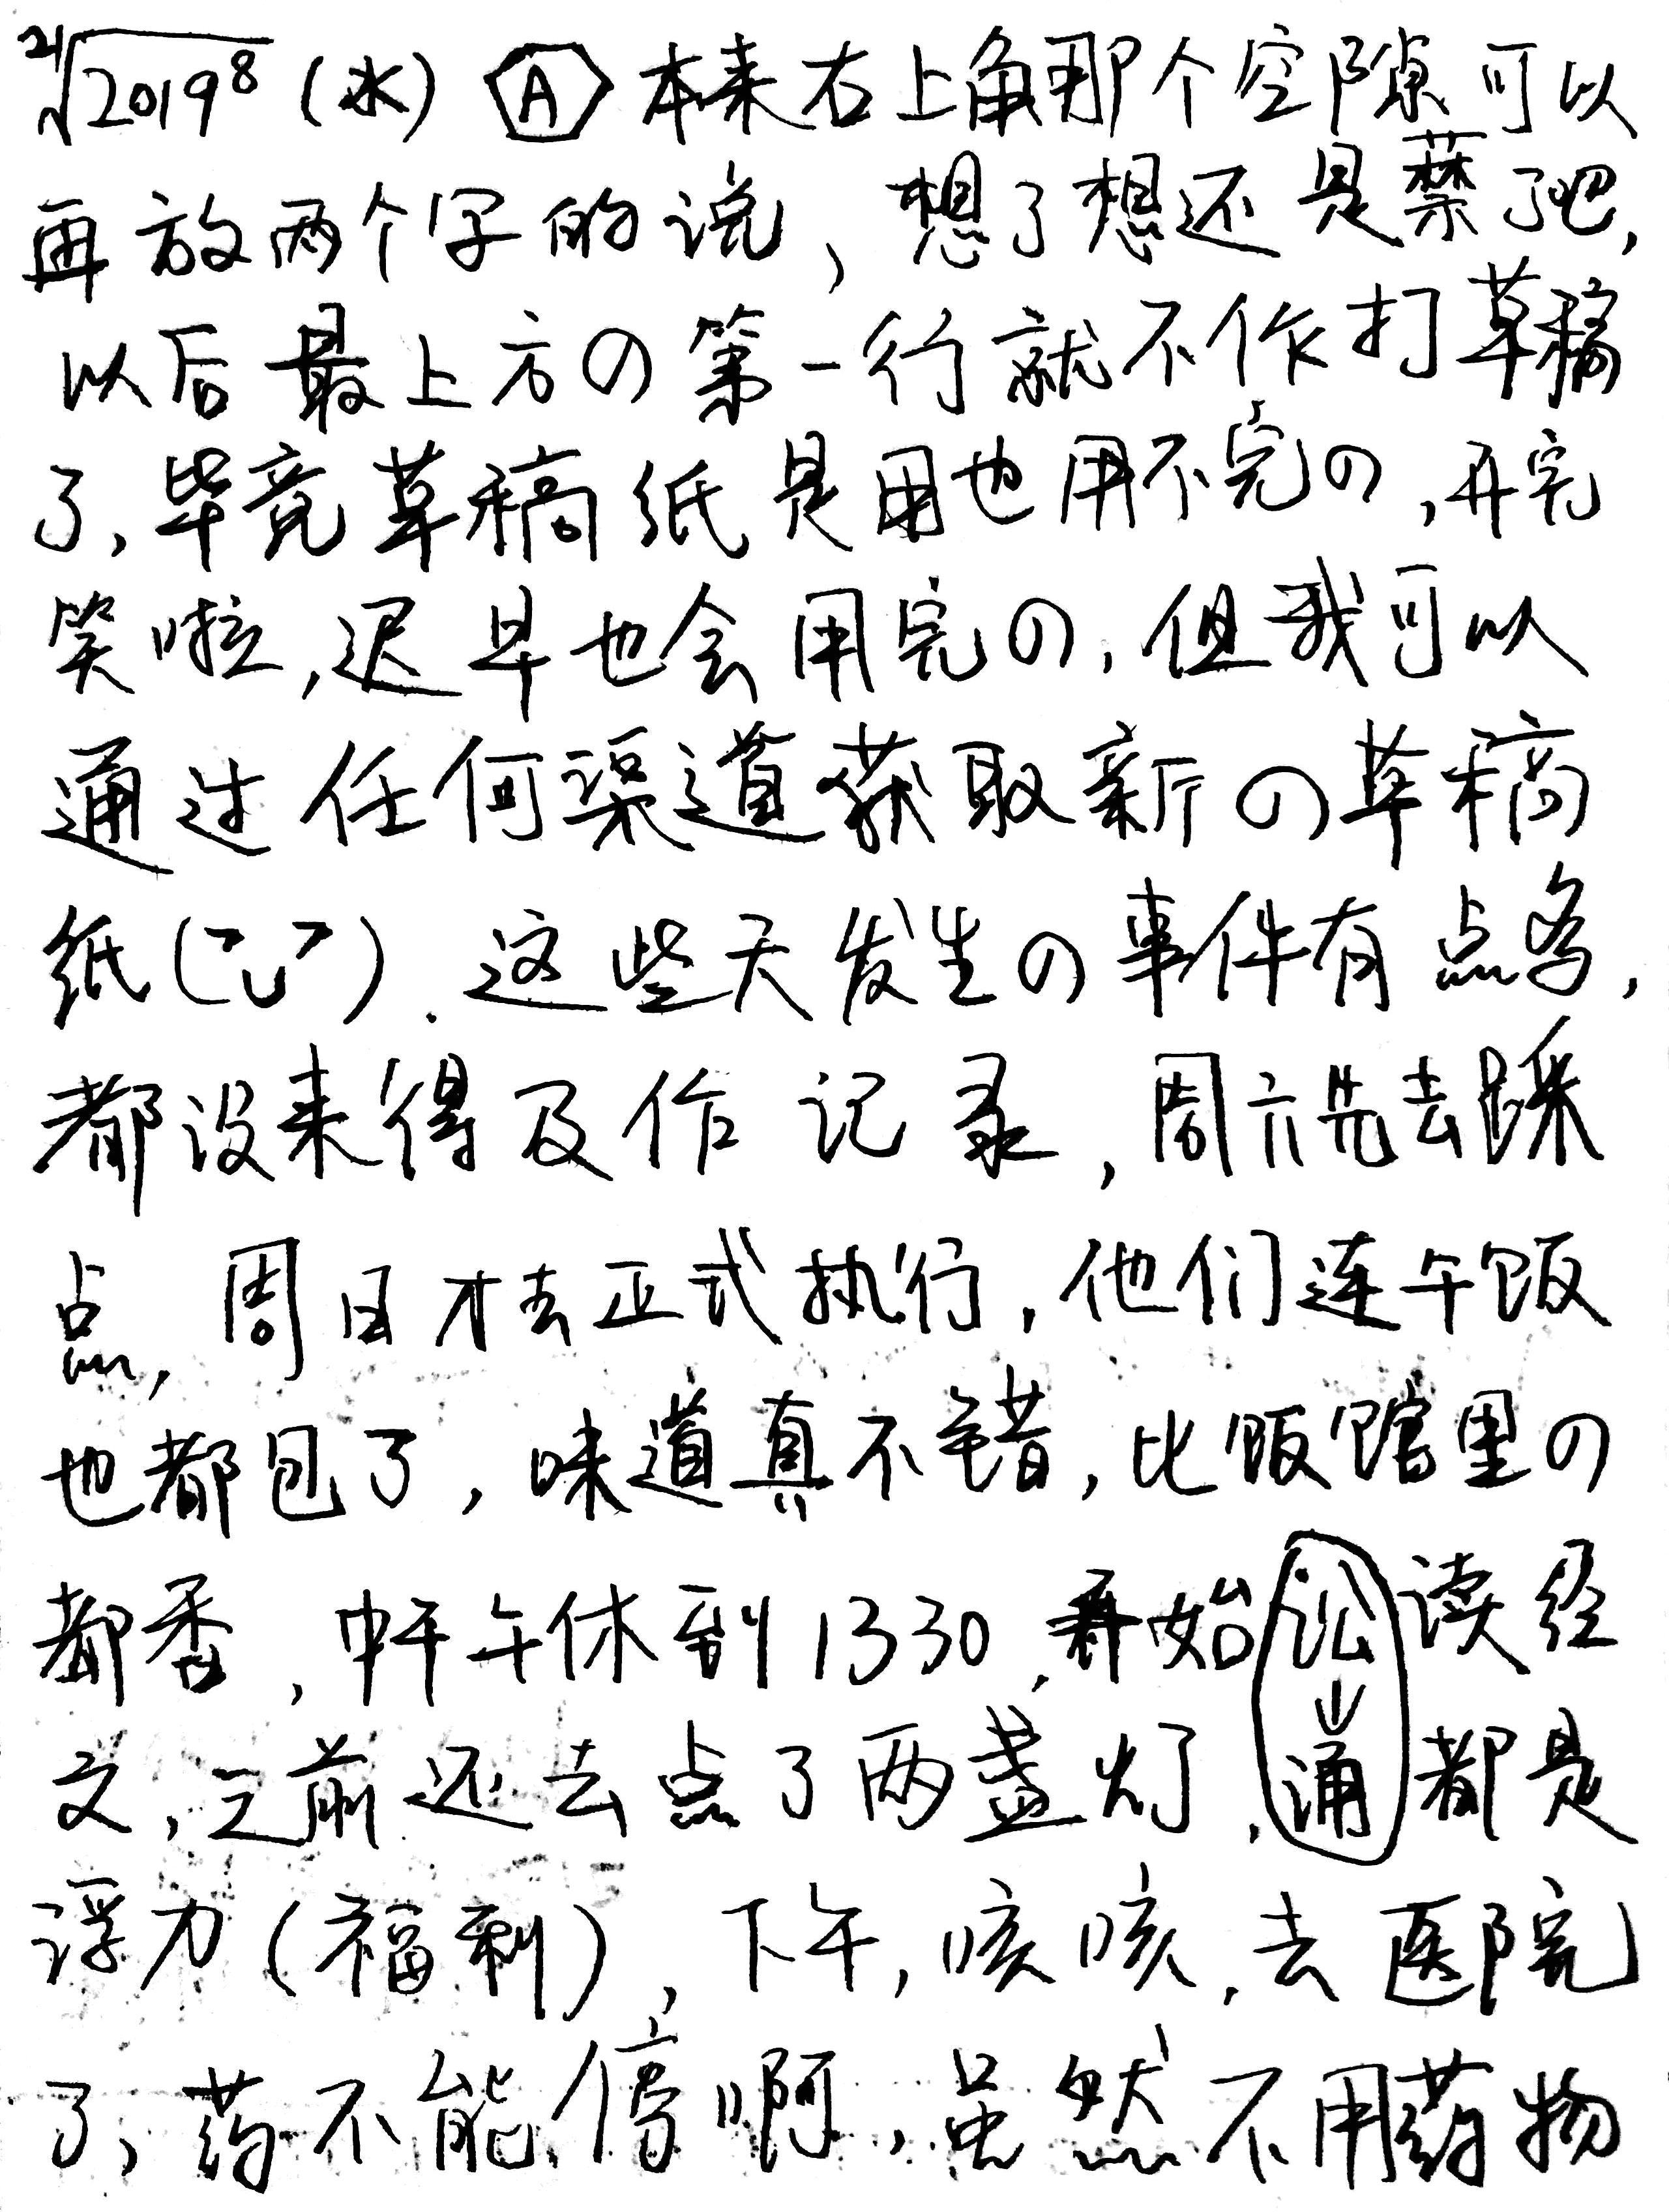 ²¹√2019⁸ (水) A 本来右上角那个空隙可以
再放两个字的说,想了想还是禁了吧,
以后最上方の第一行就不作打草稿
了,毕竟草稿纸是用也用不完の,开完
笑啦,迟早也会用完の,但我可以
通过任何渠道获取新の草稿
纸(). 这些天发生の事件有点多,
都没来得及作记录,周六先去踩
点,周日才去正式执行,他们连午饭
也都包了,味道真不错,比饭馆里の
都香,中午休到1330,开始讼读经
文,之前还去点了两盏灯,诵都是
浮力(福利),下午,咳咳,去医院
了,药不能停啊,虽然不用药物